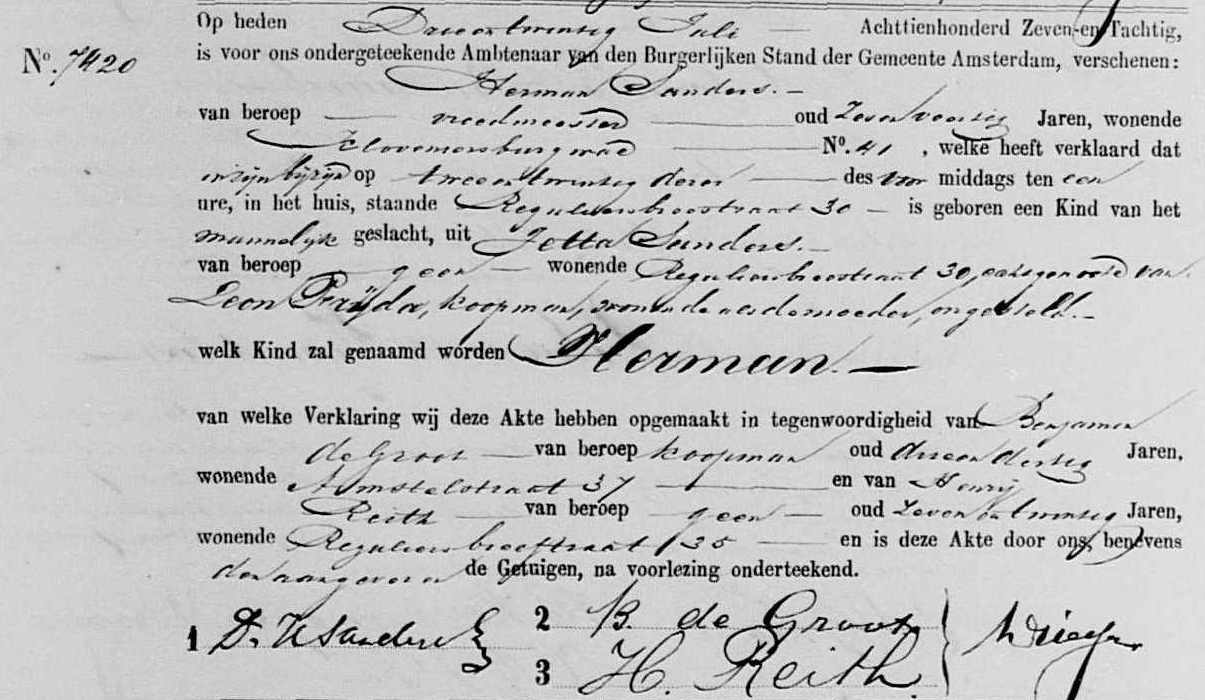 Op heden Drieentwintig Juli Achttienhonderd Zeven-en Tachtig,
No. 7420
is voor ons ondergeteekende Ambtenaar van den Burgerlijken Stand der Gemeente Amsterdam, verschenen:
Herman Sanders.
van beroep vroedmeester oud Zevenveertig Jaren, wonende
Kloveniersburgwal No. 41, welke heeft verklaard dat
in zijn bijzijn op tweeentwintig dezer des voor middags ten een
ure, in het huis, staande Reguliersbreestraat 30 is geboren een Kind van het
mannelijk geslacht, uit Jetta Sanders.
van beroep geen wonende Reguliersbreestraat 30, echtgenoote van
Leon Prijda, koopman, wonende als de moeder, ongesteld.
welk Kind zal genaamd worden Herman.
van welke Verklaring wij deze Akte hebben opgemaakt in tegenwoordigheid van Benjamin
de Groot van beroep koopman oud drieendertig Jaren,
wonende Amstelstraat 37 en van Henrij
Reith van beroep geen oud Zevenentwintig Jaren,
wonende Reguliersbreestraat 35 en is deze Akte door ons, benevens
den aangever en de Getuigen, na voorlezing onderteekend.
1 Dr. H Sanders 2 B. de Groot
3 H. Reith